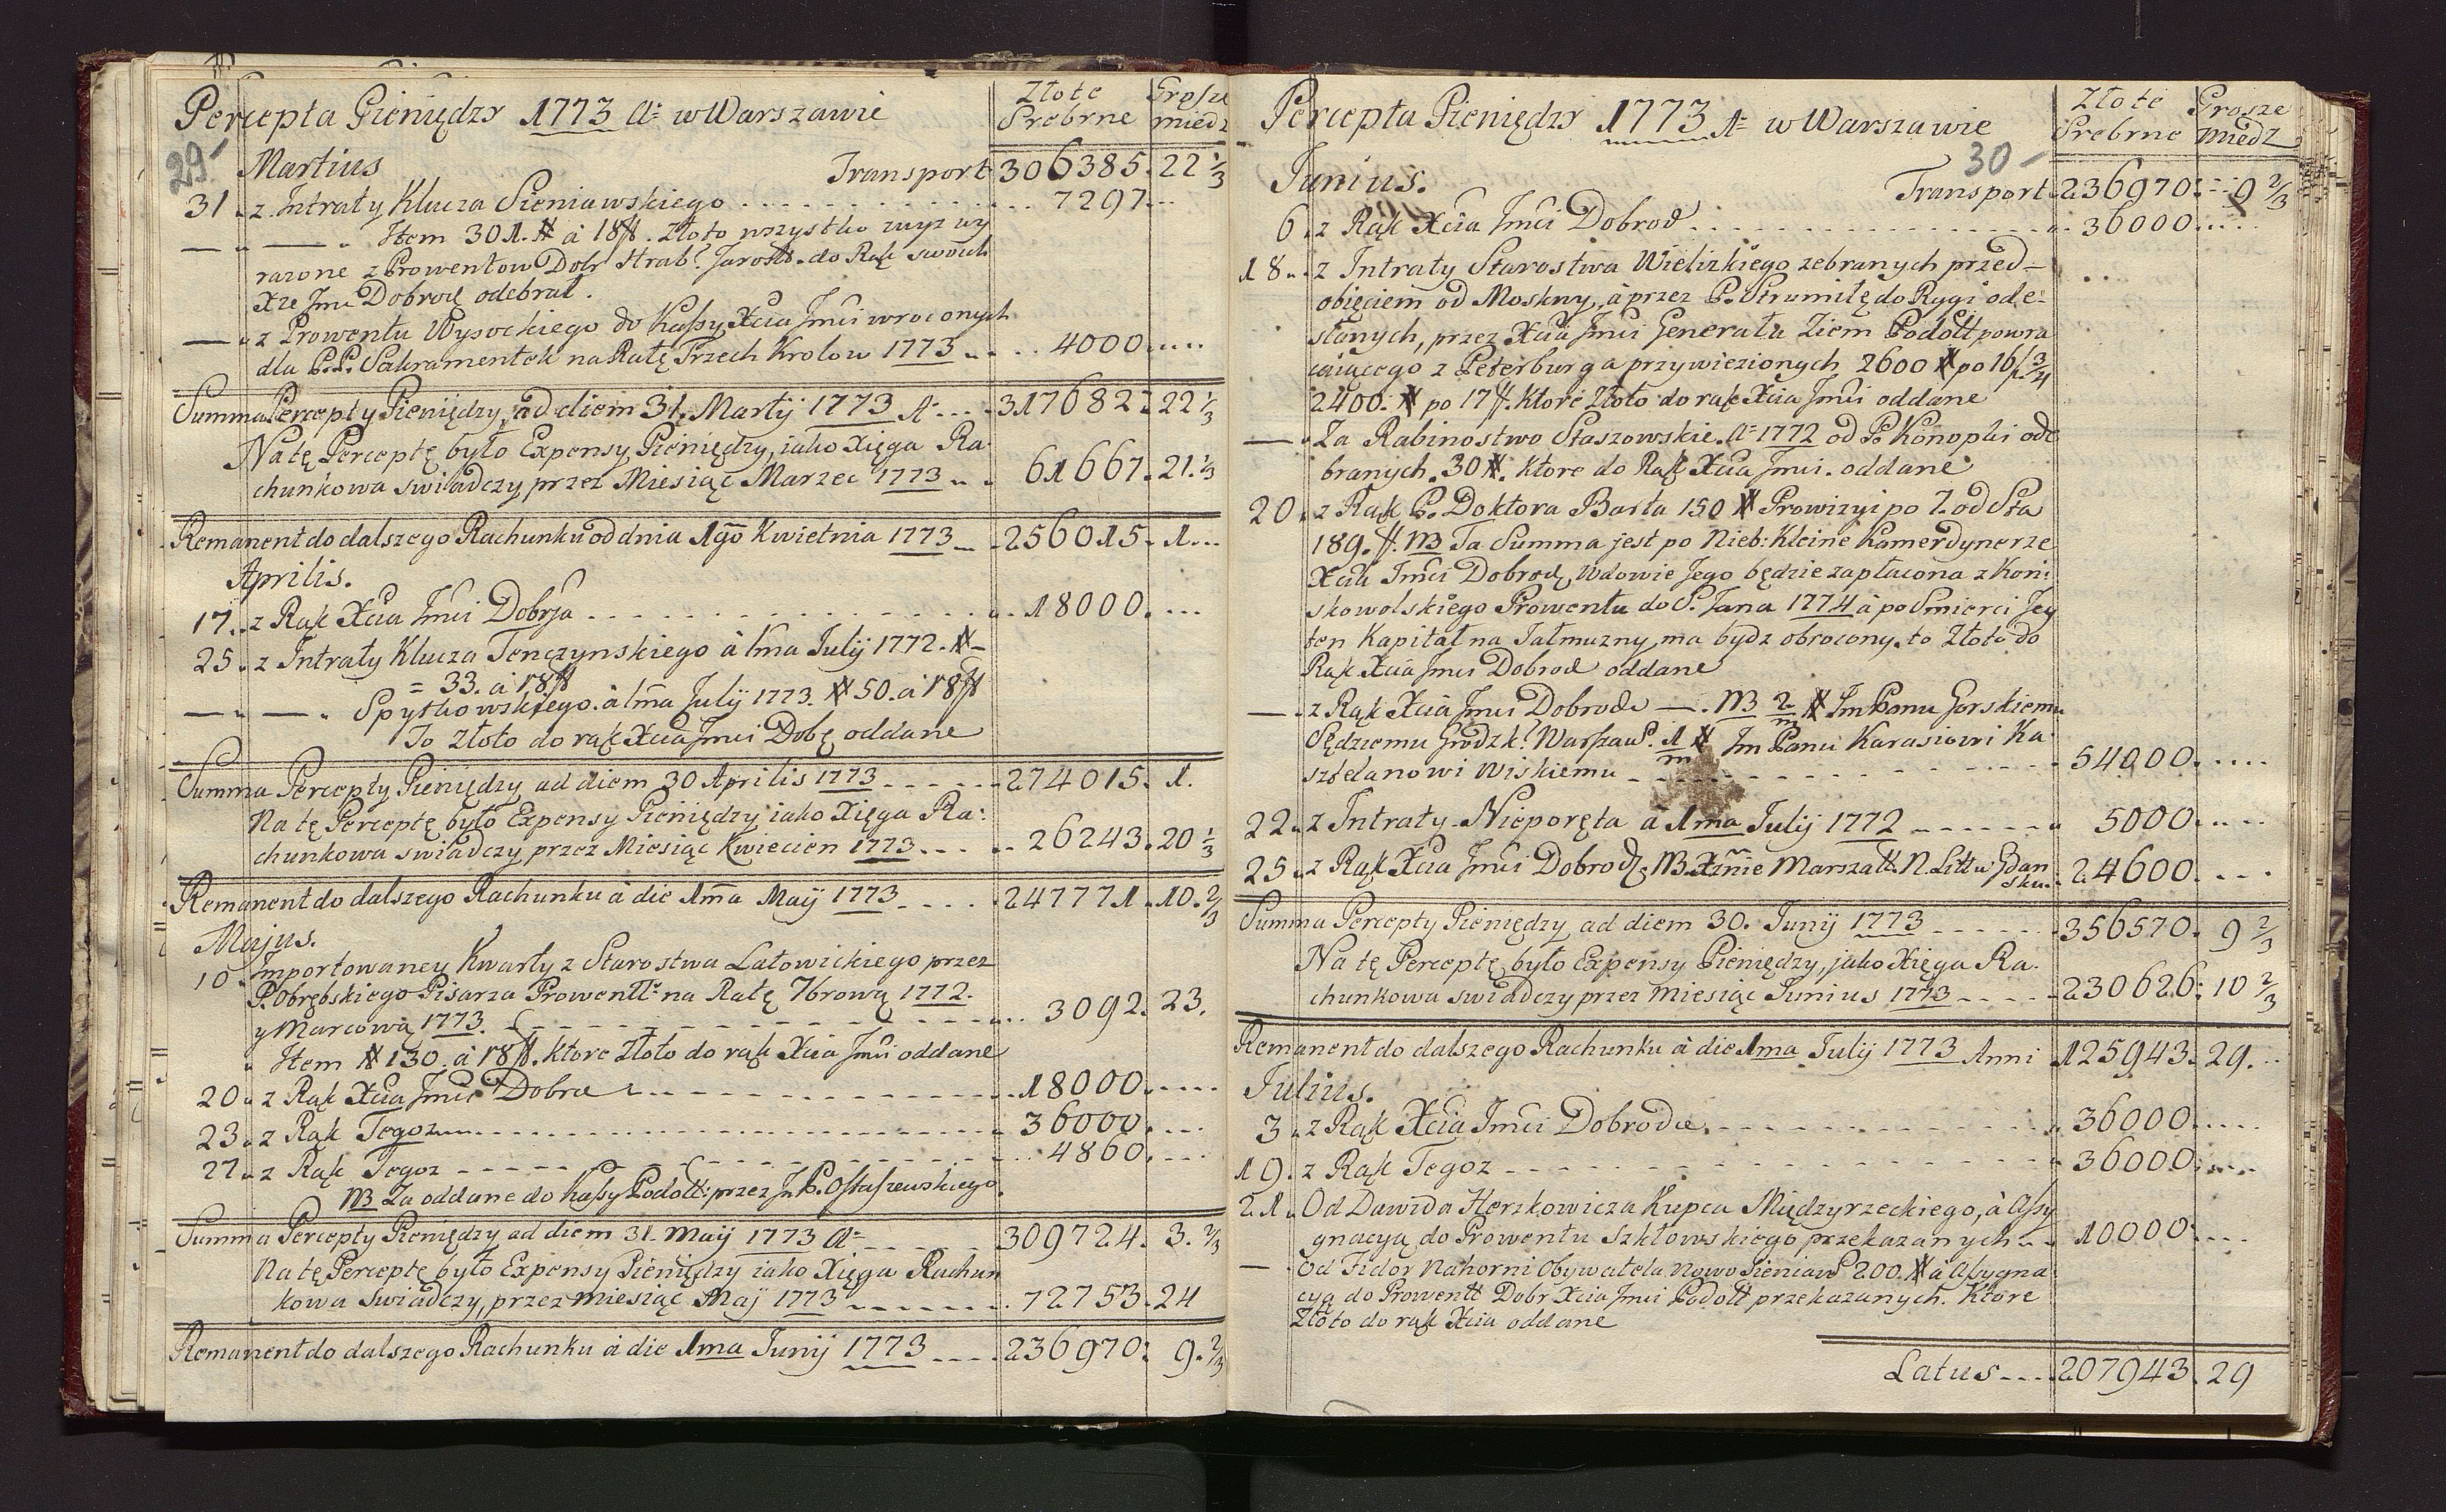 Percepta Pieniędzy 1773 A= w Warszawie
Złote Srebrne
Grosze miedz
29.
Martius Transport 306385. 22 1/3
31. z Intraty Klucza Sieniawskiego 7297
Item 301. # à 18 f. Złoto wszystko wyż wy
rażone z Prowentow Dobr Hrab: Jarosł. do Rąk swoich
Xże Jmć Dobrodź odebrał.
z Prowentu Wysockiego do Kassy Xcia Jmci wroconych
dla P.P. Sakramentek na Ratę Trzech Krolow 1773 4000
Summa Percepty Pieniędzy, ad diem 31. Martij 1773 A= 317682. 22 1/3
Na tę Perceptę było Expensy Pieniędzy, iako Xięga Ra
chunkowa swiadczy przez Miesiąc Marzec 1773 61667. 21. 1/3
Remanent do dalszego Rachunku od dnia 1go Kwietnia 1773 256015. 1.
Aprilis.
17. z Rąk Xcia Jmci Dobrja 18000.
25. z Intraty Klucza Tenczynskiego à 1ma Julij 1772. #
= 33. à 18 f
Spytkowskiego. à 1ma Julij 1773. # 50. à 18 f
To Złoto do rąk Xcia Jmci Dobę oddane
Summa Percepty Pieniędzy ad diem 30 Aprilis 1773 274015. 1.
Na tę Perceptę było Expensy Pieniędzy iako Xięga Ra:
chunkowa swiadczy przez Miesiąc Kwiecien 1773 26243. 20 1/3
Remanent do dalszego Rachunku à die 1ma Maij 1773 247771. 10. 2/3
Majus.
10. Importowaney Kwarty z Starostwa Latowickiego przez
P. Obrębskiego Pisarza Prowentt: na Ratę 7brową 1772.
y Marcową 1773. 3092. 23.
Item # 130. à 18 f. ktore Złoto do rąk Xcia Jmci oddane
20. z Rąk Xcia Jmci Dobra 18000.
23. z Rąk Tegoz 36000.
27. z Rąk Tegoz 4860.
NB Za oddane do Kassy Podoll: przez J.P. Ostaszewskiego.
Summa Percepty Pieniędzy ad diem 31. Maij 1773 A= 309724. 3. 2/3
Na tę Perceptę było Expensy Pieniędzy iako Xięga Rachun
kowa swiadczy, przez miesiąc Maij 1773 72753. 24
Remanent do dalszego Rachunku à die 1ma Junij 1773 236970. 9. 2/3
Percepta Pieniędzy 1773 A= w Warszawie
Złote Srebrne
Grosze miedz
30
Junius. Transport 236970. 9 2/3
6. z Rąk Xcia Jmci Dobrod 36000
18. z Intraty Starostwa Wielizkiego zebranych przed-
obięciem od Moskwy, à przez P. Strumiłę do Rygi ode-
słanych, przez Xcia Jmci Generała Ziem Podoll powra
caiącego z Peterburga przywiezionych 2600 # po 16 f 3/4
2400. # po 17 f. Ktore Złoto do rąk Xcia Jmci oddane
Za Rabinostwo Staszowskie. A= 1772 od P. Konopki ode
branych. 30 #. Ktore do Rąk Xcia Jmci. oddane
20. z Rąk P. Doktora Barta 150 # Prowizyi po 7. od Sta
189. f. NB Ta Summa jest po Nieb: Kleine Kamerdynerze
Xcia Jmci Dobrodź, Wdowie Jego będzie zapłacona z Koni:
skowolskiego Prowentu do S. Jana 1774 à po Smierci Jey
ten Kapitał na Jałmużny, ma bydz obrocony. to Złoto do
Rąk Xcia Jmci Dobrod oddane
z Rąk Xcia Jmci Dobrodz NB 2/m # Jm Panu Gorskiemu
Sędziemu Grodzk: Warszaws. 1/m # Jm Panu Karasiowi Ka
sztelanowi Wiskiemu 54000.
22. z Intraty Nieporęta à 1ma Julij 1772 5000.
25. z Rąk Xcia Jmci Dobrodz. NB. Xżnie Marszałk. N. Litt w Gdan
sku. 24600.
Summa Percepty Pieniędzy ad diem 30. Junij 1773 356570. 9 2/3
Na tę Perceptę było Expensy Pieniędzy, jako Xięga Ra.
chunkowa swiadczy przez miesiąc Junius 1773 230626. 10 2/3
Remanent do dalszego Rachunku à die 1ma Julij 1773 Anni 125943. 29.
Julius.
3. z Rąk Xcia Jmci Dobrodz. 36000
19. z Rąk Tegoz 36000
21. Od Dawida Herzkowicza Kupca Międzyrzeckiego, à Assy
gnacyą do Prowentu Szkłowskiego przekazanych 10000
Od Fidor Nahorni Obywatela Nowo Sieniaws 200. # à Assygna
cya do Prowentt Dobr Xcia Jmci Podoll przekazanych. Ktore
Złoto do rąk Xcia oddane
Latus 207943. 29